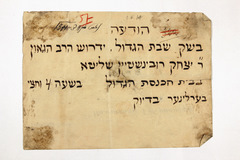 הודיעה
בשק שבת הגדול, ידרוש הרב הגאון
ר' יצחק רובינשטיין שליטא
בבית הכנסת הגדול בשעה 4 וחצי
בערלינער בדיוק